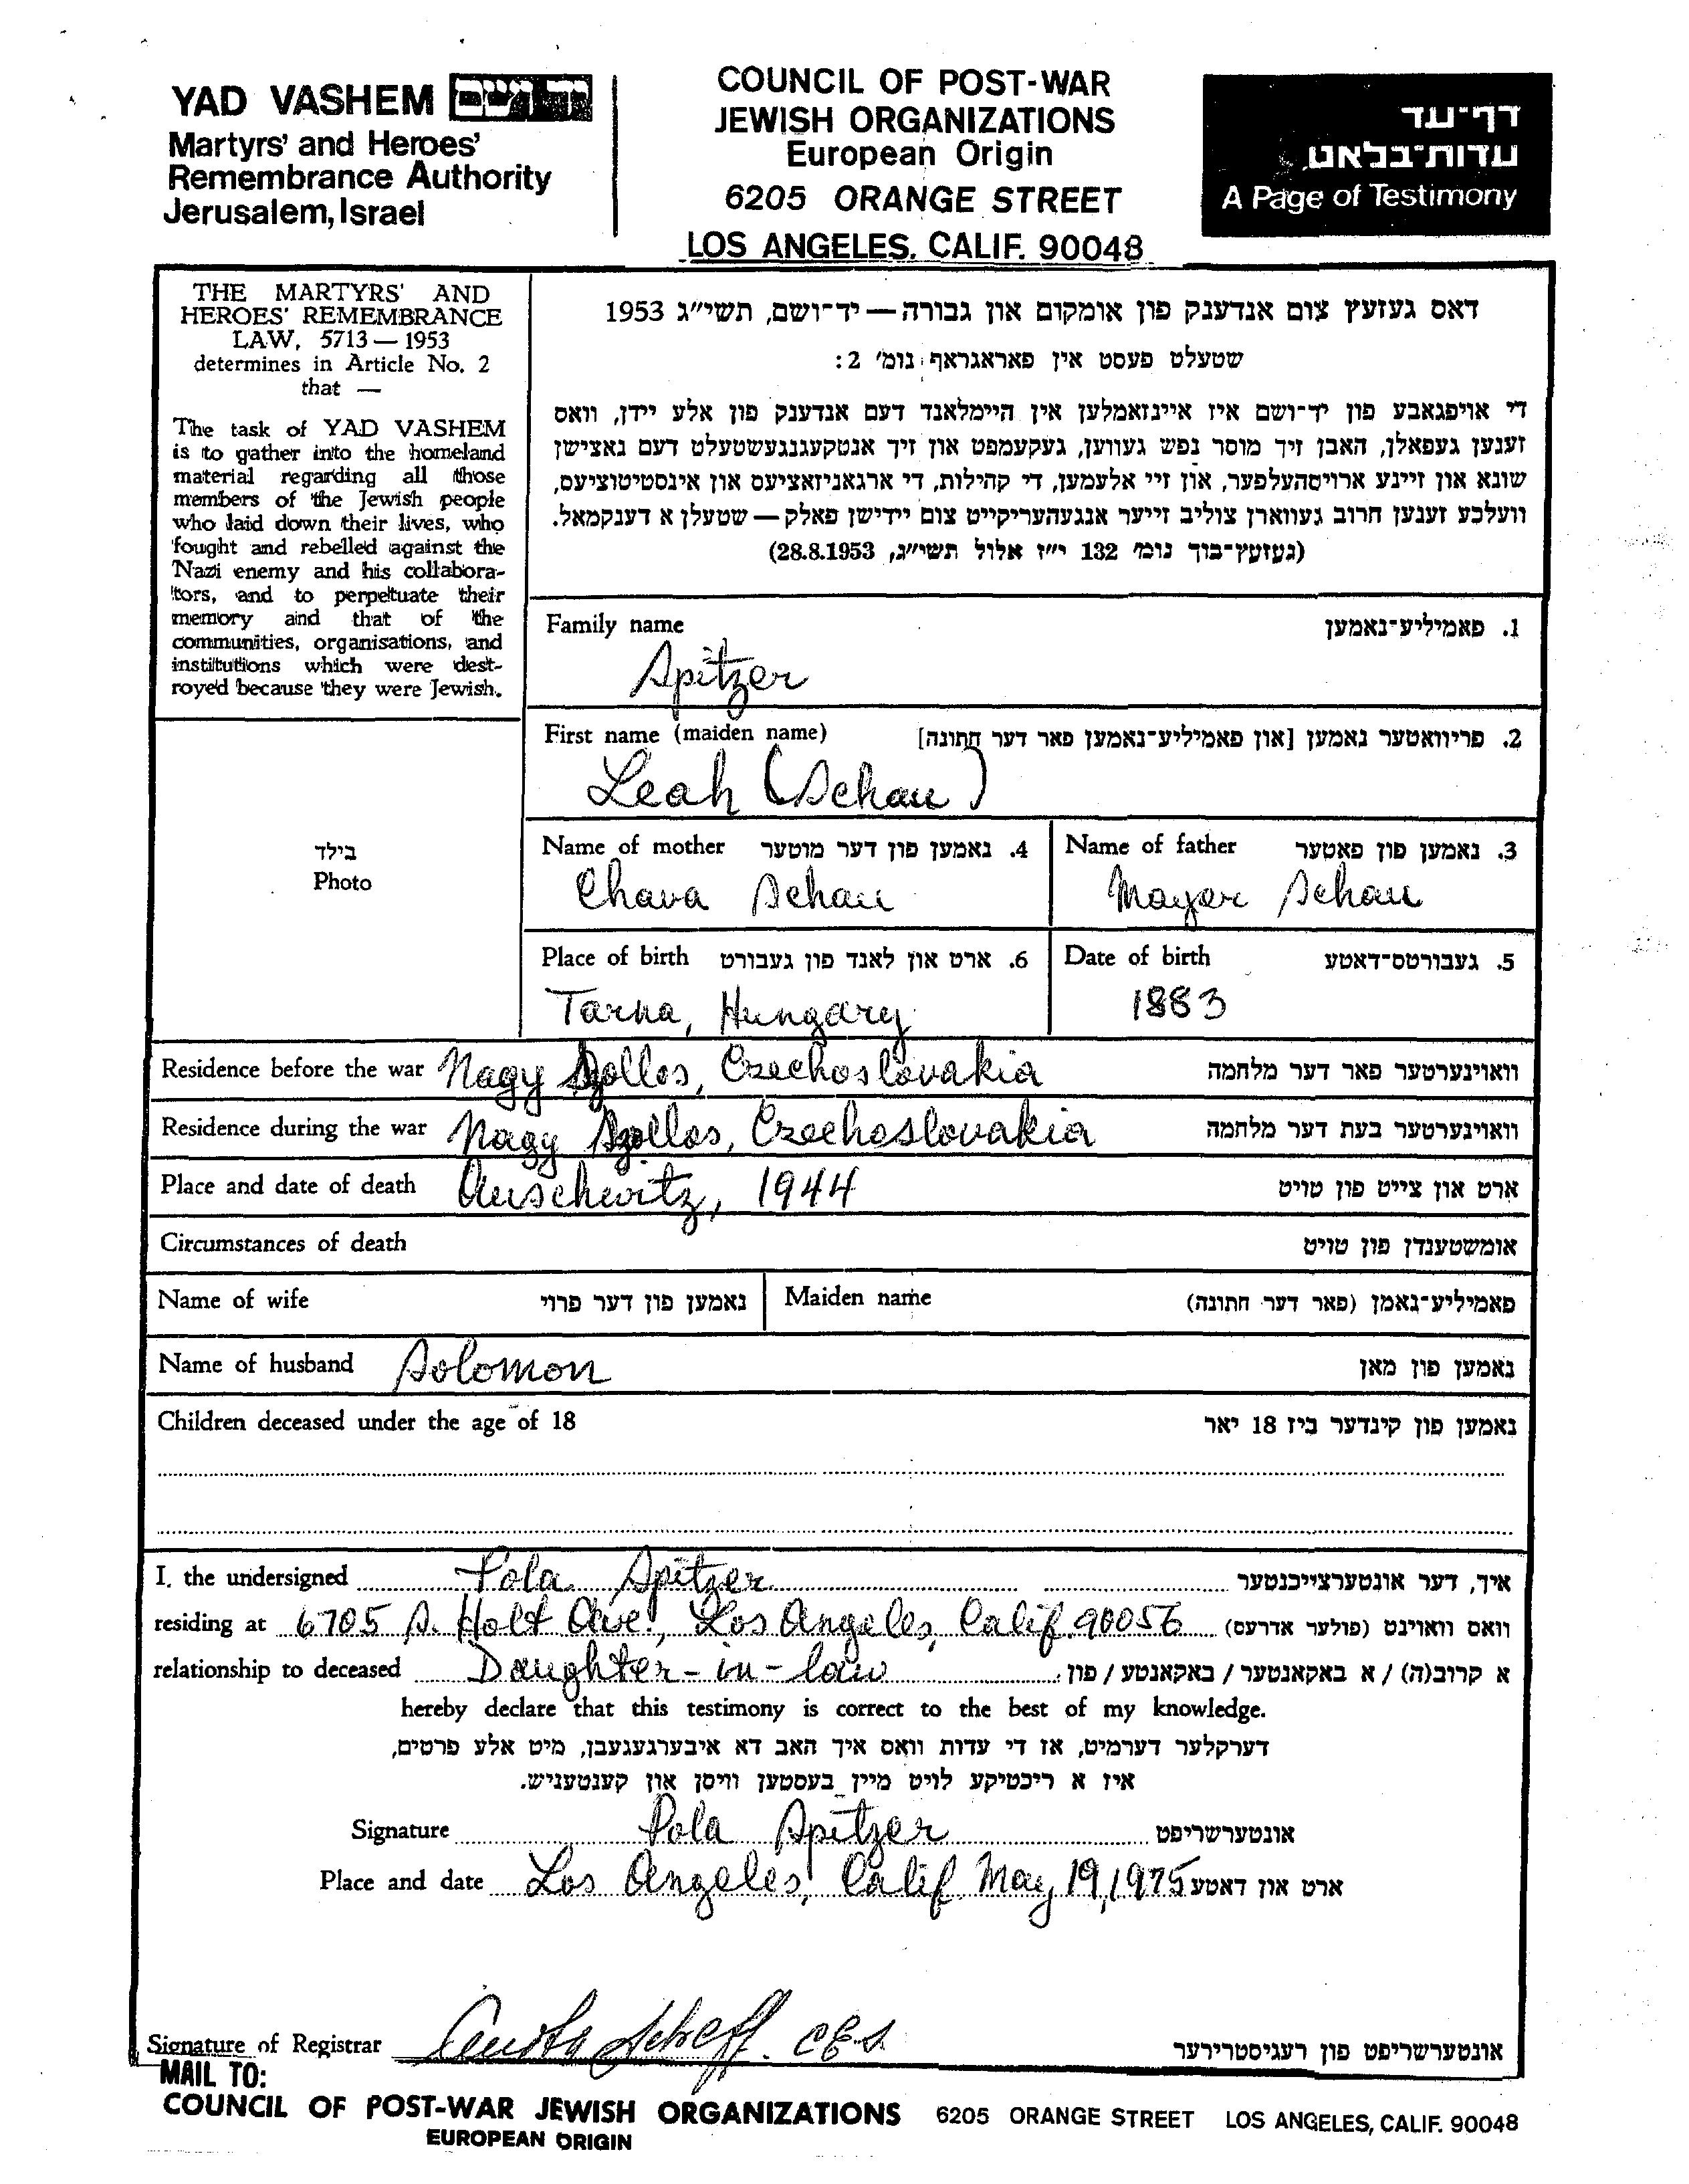 YAD VASHEM יד ושם
Martyrs' and Heroes'
Remembrance Authority
Jerusalem, Israel
COUNCIL OF POST-WAR
JEWISH ORGANIZATIONS
European Origin
6205 ORANGE STREET
LOS ANGELES, CALIF. 90048
דף־עד
עדות־בלאט
A Page of Testimony
THE MARTYRS' AND
HEROES' REMEMBRANCE
LAW, 5713 — 1953
determines in Article No. 2
that —
The task of YAD VASHEM
is to gather into the homeland
material regarding all those
members of the Jewish people
who laid down their lives, who
fought and rebelled against the
Nazi enemy and his collabora-
tors, and to perpetuate their
memory and that of the
communities, organisations, and
institutions which were dest-
royed because they were Jewish.
דאס געזעץ צום אנדענק פון אומקום און גבורה — יד־ושם, תשי״ג 1953
שטעלט פעסט אין פאראגראף נומ׳ 2:
די אויפגאבע פון יד־ושם איז איינזאמלען אין היימלאנד דעם אנדענק פון אלע יידן, וואס
זענען געפאלן, האבן זיך מוסר נפש געווען, געקעמפט און זיך אנטקעגנגעשטעלט דעם נאצישן
שונא און זיינע ארויסהעלפער, און זיי אלעמען, די קהילות, די ארגאניזאציעס און אינסטיטוציעס,
וועלכע זענען חרוב געווארן צוליב זייער אנגעהעריקייט צום יידישן פאלק — שטעלן א דענקמאל.
(געזעץ־בוך נומ׳ 132 י״ז אלול תשי״ג, 28.8.1953)
Family name 1. פאמיליע־נאמען
Spitzer
First name (maiden name) 2. פריוואטער נאמען [און פאמיליע־נאמען פאר דער חתונה]
Leah (Schau)
בילד
Photo
Name of mother 4. נאמען פון דער מוטער
Chava Schau
Name of father 3. נאמען פון פאטער
Mayer Schau
Place of birth 6. ארט און לאנד פון געבורט
Tarna, Hungary
Date of birth 5. געבורטס־דאטע
1883
Residence before the war Nagy Szollos, Czechoslovakia וואוינערטער פאר דער מלחמה
Residence during the war Nagy Szollos, Czechoslovakia וואוינערטער בעת דער מלחמה
Place and date of death Auschwitz, 1944 ארט און צייט פון טויט
Circumstances of death אומשטענדן פון טויט
Name of wife נאמען פון דער פרוי Maiden name פאמיליע־נאמן (פאר דער חתונה)
Name of husband Solomon נאמען פון מאן
Children deceased under the age of 18 נאמען פון קינדער ביז 18 יאר
I, the undersigned Pola Spitzer איך, דער אונטערצייכנטער
residing at 6705 S. Holt Ave., Los Angeles, Calif. 90056 וואס וואוינט (פולער אדרעס)
relationship to deceased Daughter-in-law א קרוב(ה) / א באקאנטער / באקאנטע / פון
hereby declare that this testimony is correct to the best of my knowledge.
דערקלער דערמיט, אז די עדות וואס איך האב דא איבערגעגעבן, מיט אלע פרטים,
איז א ריכטיקע לויט מיין בעסטען וויסן און קענטעניש.
Signature Pola Spitzer אונטערשריפט
Place and date Los Angeles, Calif. May, 19, 1975 ארט און דאטע
Signature of Registrar אונטערשריפט פון רעגיסטרירער
MAIL TO:
COUNCIL OF POST-WAR JEWISH ORGANIZATIONS 6205 ORANGE STREET LOS ANGELES, CALIF. 90048
EUROPEAN ORIGIN